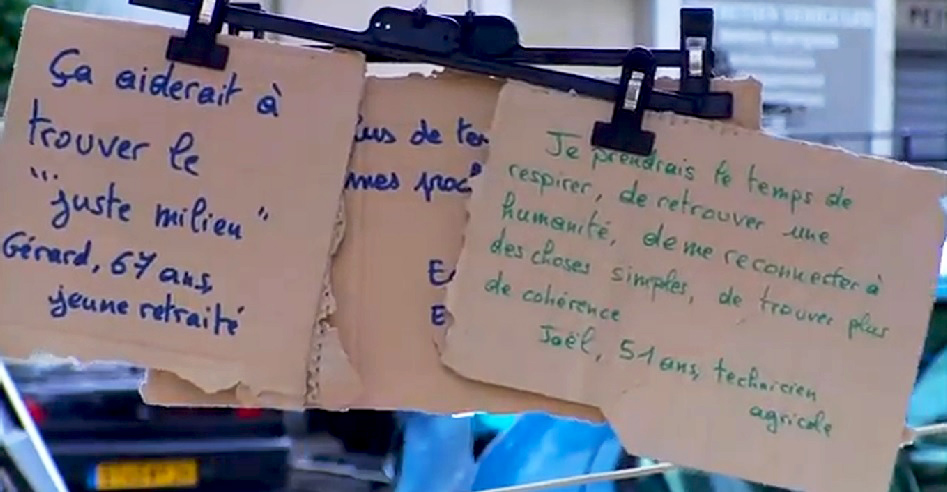 Ça aiderait à
trouver le
"juste milieu"
Gérard, 67 ans,
jeune retraité
de
mes
E
E
Je prendrais le temps de
respirer, de retrouver une
humanité, de me reconnecter à
des choses simples, de trouver plus
de cohérence
Joël, 51 ans, technicien
agricole